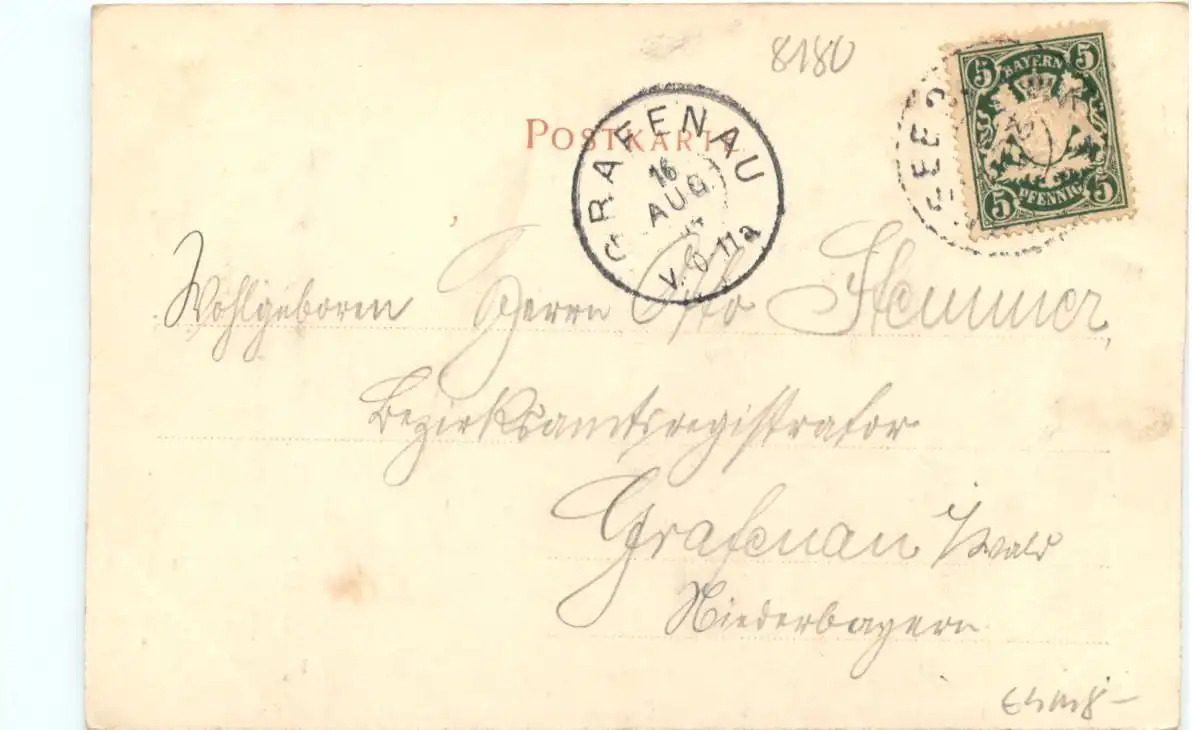 8180
POSTKARTE
GRAFENAU
16
AUG
V. 0-11a
5 BAYERN 5
5 PFENNIG 5
Wohlgeboren Herrn Otto Stemmer,
Bezirksamtsregistrator
Grafenau i/Wald
Niederbayern